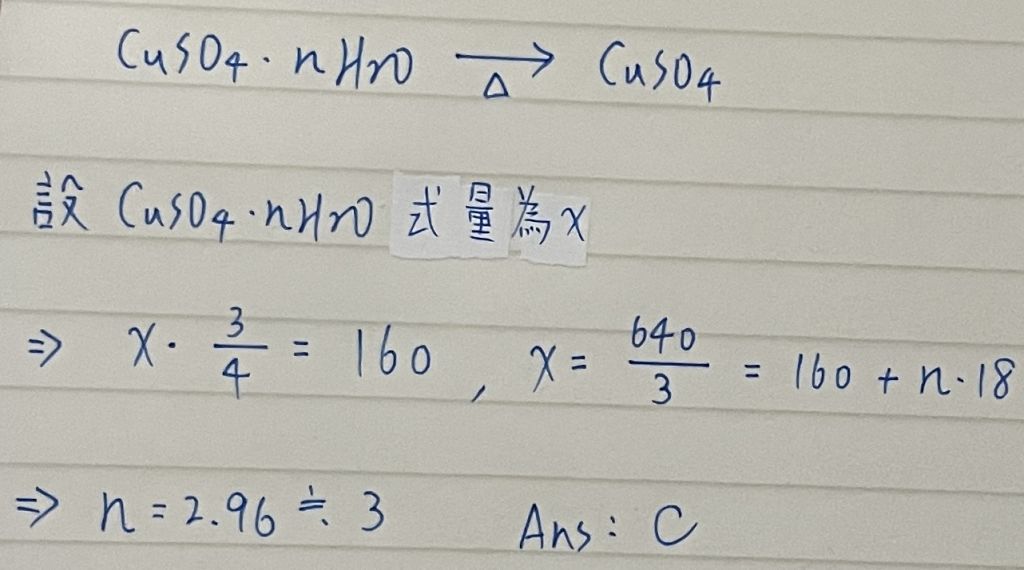 CuSO₄·nH₂O →Δ CuSO₄
設 CuSO₄·nH₂O 式量為x
⇒ x · 3/4 = 160 , x = 640/3 = 160 + n·18
⇒ n = 2.96 ≒ 3 Ans: C